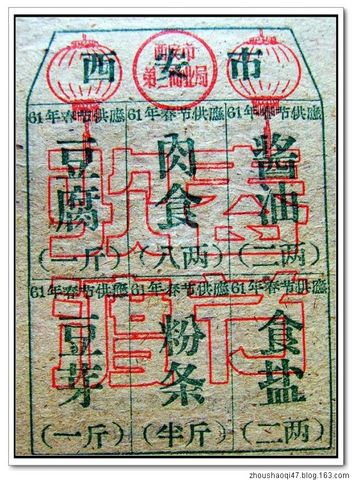 西安市
西安市
第二商业局
61年春节供應
豆腐
(一斤)
61年春节供應
肉食
(八两)
61年春节供應
酱油
(二两)
61年春节供應
豆芽
(一斤)
61年春节供應
粉条
(半斤)
61年春节供應
食盐
(二两)
zhoushaoqi47.blog.163.com